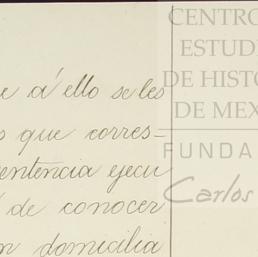 CENTRO
ESTUDI
DE HISTO
DE MEX
FUNDA
Carlos
e á ello se les
s que corres=
entencia ejecu
de conocer
n domicilia